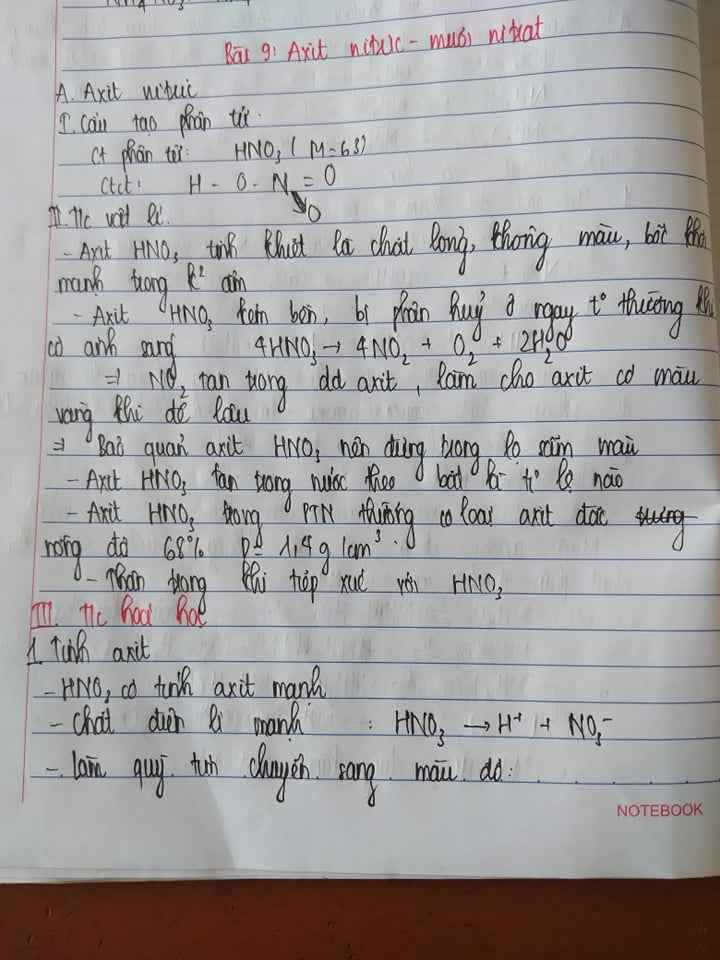 Bài 9: Axit nitric - muối nitrat
A. Axit nitric
I. Cấu tạo phân tử.
Ct phân tử: HNO3 ( M=63)
Ctct: H - O - N = O
O
II. T/c vật lí.
- Axit HNO3 tinh khiết là chất lỏng, không màu, bốc khói
mạnh trong k² ẩm
- Axit HNO3 kém bền, bị phân huỷ ở ngay t° thường khi
có ánh sáng 4HNO3 → 4NO2 + O2 + 2H2O
⇒ NO2 tan trong dd axit, làm cho axit có màu
vàng khi để lâu
⇒ Bảo quản axit HNO3 nên đựng trong lọ sẫm màu
- Axit HNO3 tan trong nước theo bất kì tỉ lệ nào
- Axit HNO3 trong PTN thường có loại axit đặc
nồng độ 68% D= 1,4 g/cm³.
- Thận trọng khi tiếp xúc với HNO3
III. T/c hoá học
1. Tính axit
- HNO3 có tính axit mạnh
- Chất điện li mạnh : HNO3 → H+ + NO3-
- làm quỳ tím chuyển sang màu đỏ.
NOTEBOOK